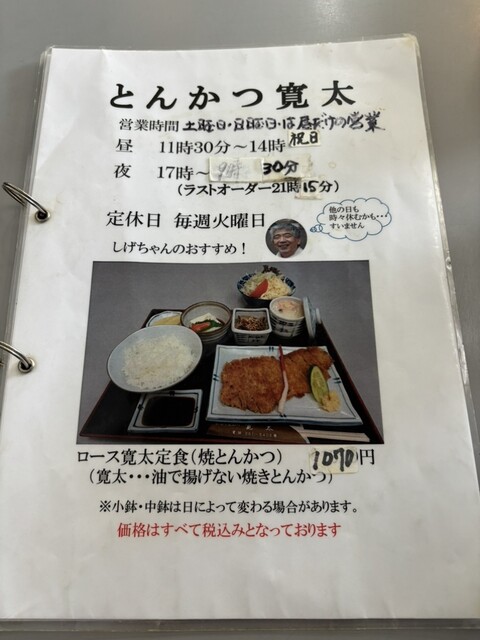 とんかつ寛太
営業時間 土曜日・日曜日・は昼だけの営業
祝日
昼 11時30分～14時
夜 17時～9時30分
(ラストオーダー21時15分)
定休日 毎週火曜日
他の日も
時々休むかも・・・
すいません
しげちゃんのおすすめ!
ロース寛太定食(焼とんかつ) 1070円
(寛太・・・油で揚げない焼きとんかつ)
※小鉢・中鉢は日によって変わる場合があります。
価格はすべて税込みとなっております